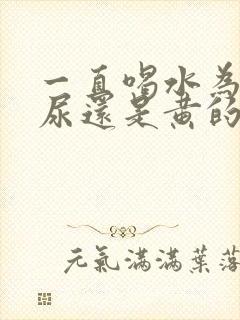 一直喝水为
尿还是黄的
元氣滿滿葉落